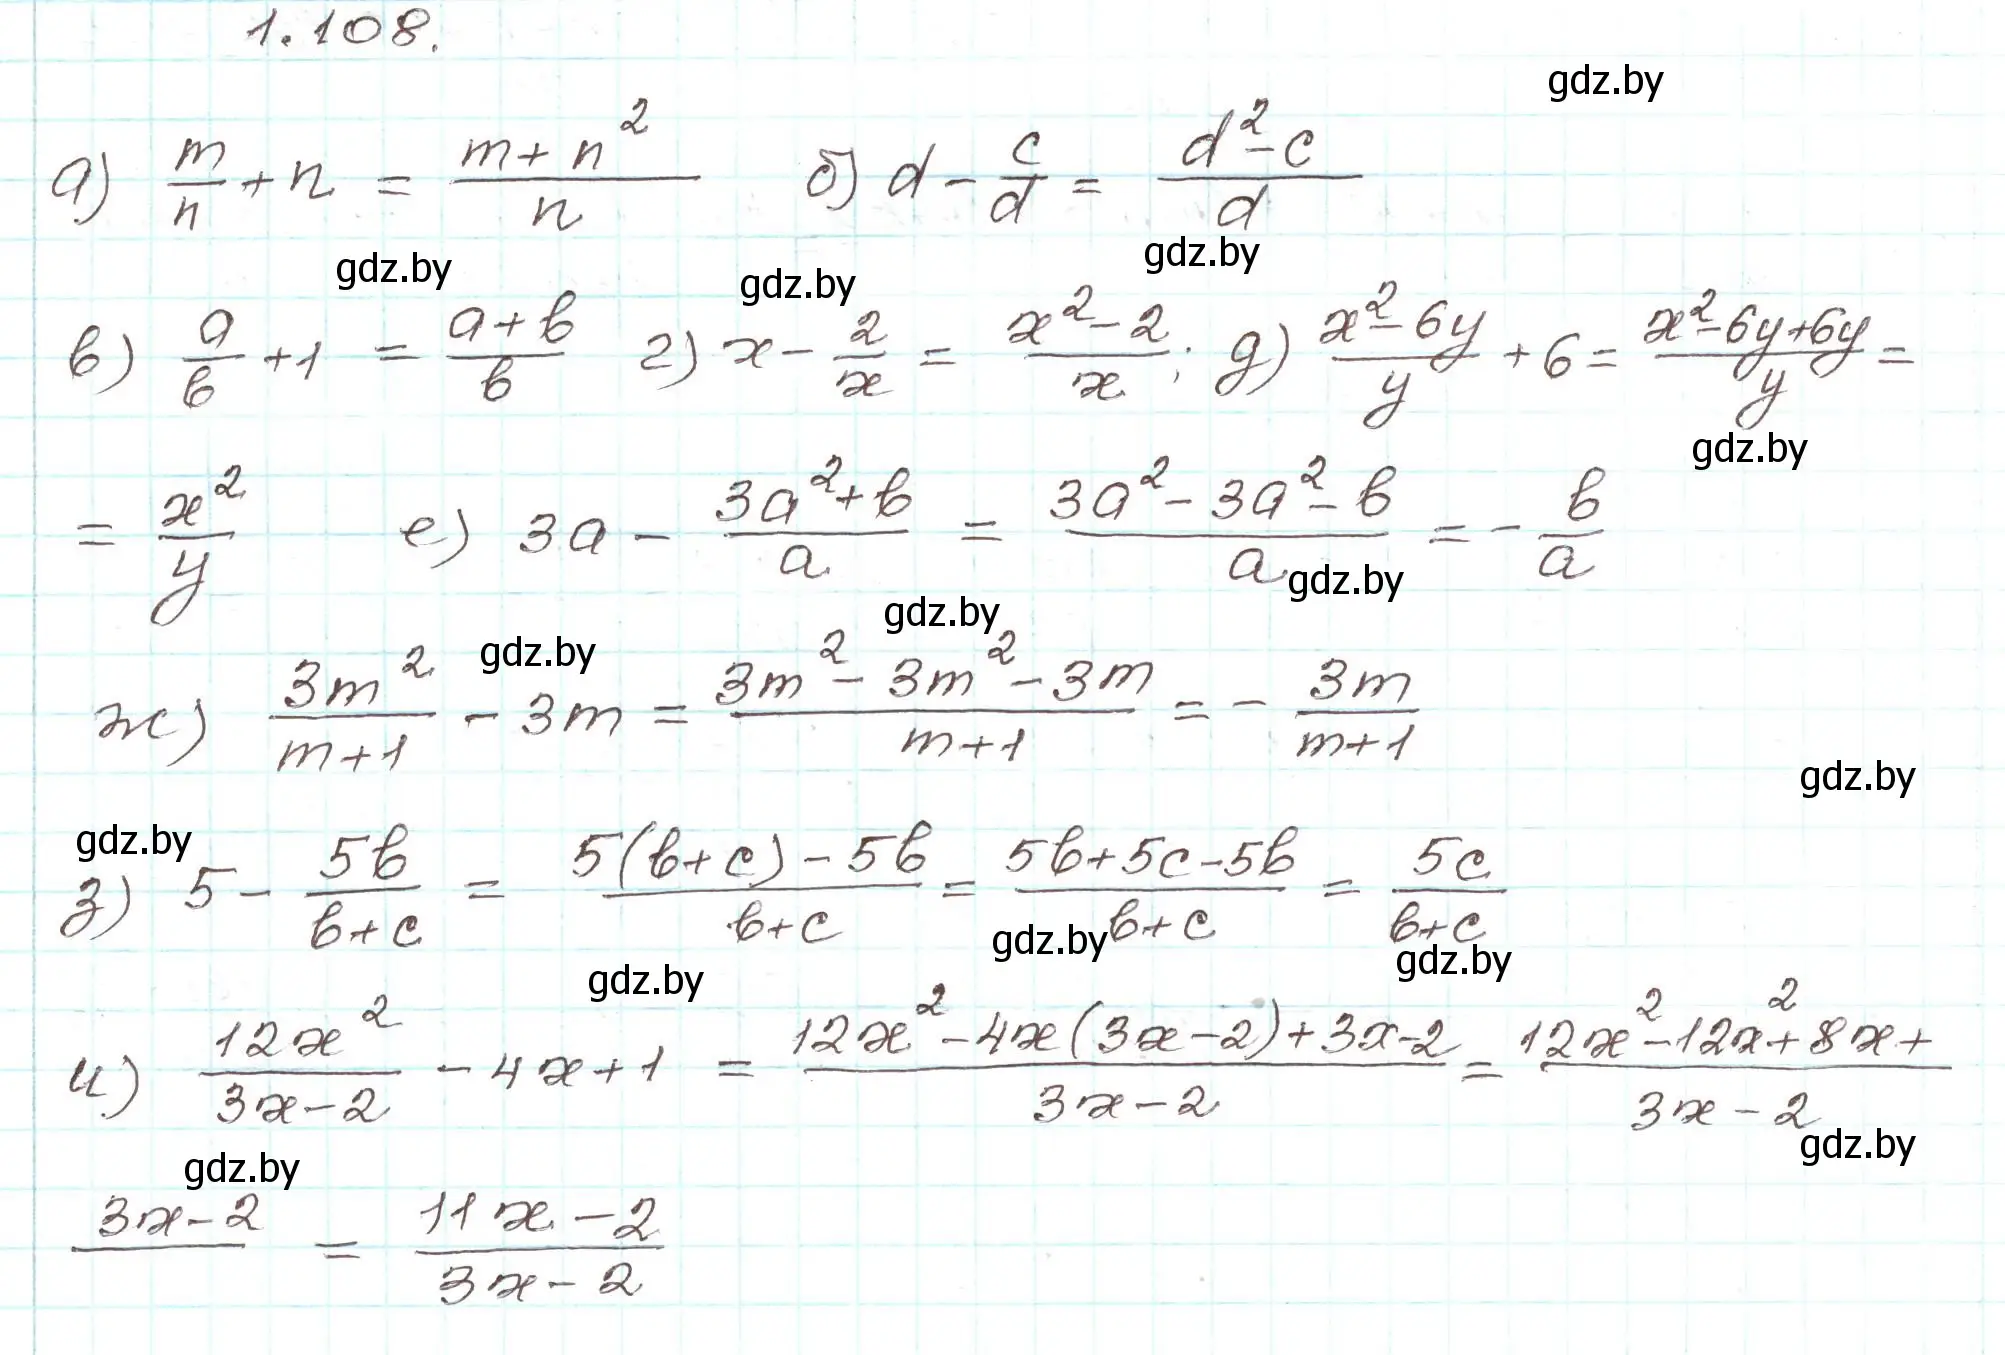 1.108.
gdz.by
а) m/n + n = (m + n²)/n   б) d - c/d = (d² - c)/d
gdz.by gdz.by gdz.by
в) a/b + 1 = (a + b)/b   г) x - 2/x = (x² - 2)/x ; д) (x² - 6y)/y + 6 = (x² - 6y + 6y)/y =
gdz.by
= x²/y   е) 3a - (3a² + b)/a = (3a² - 3a² - b)/a = - b/a
gdz.by
gdz.by gdz.by
ж) 3m²/(m+1) - 3m = (3m² - 3m² - 3m)/(m+1) = - 3m/(m+1)
gdz.by
gdz.by
з) 5 - 5b/(b+c) = (5(b+c) - 5b)/(b+c) = (5b + 5c - 5b)/(b+c) = 5c/(b+c)
gdz.by gdz.by gdz.by
и) 12x²/(3x-2) - 4x + 1 = (12x² - 4x(3x-2) + 3x - 2)/(3x-2) = (12x² - 12x² + 8x +)/(3x-2)
gdz.by gdz.by
3x-2 = (11x - 2)/(3x - 2)